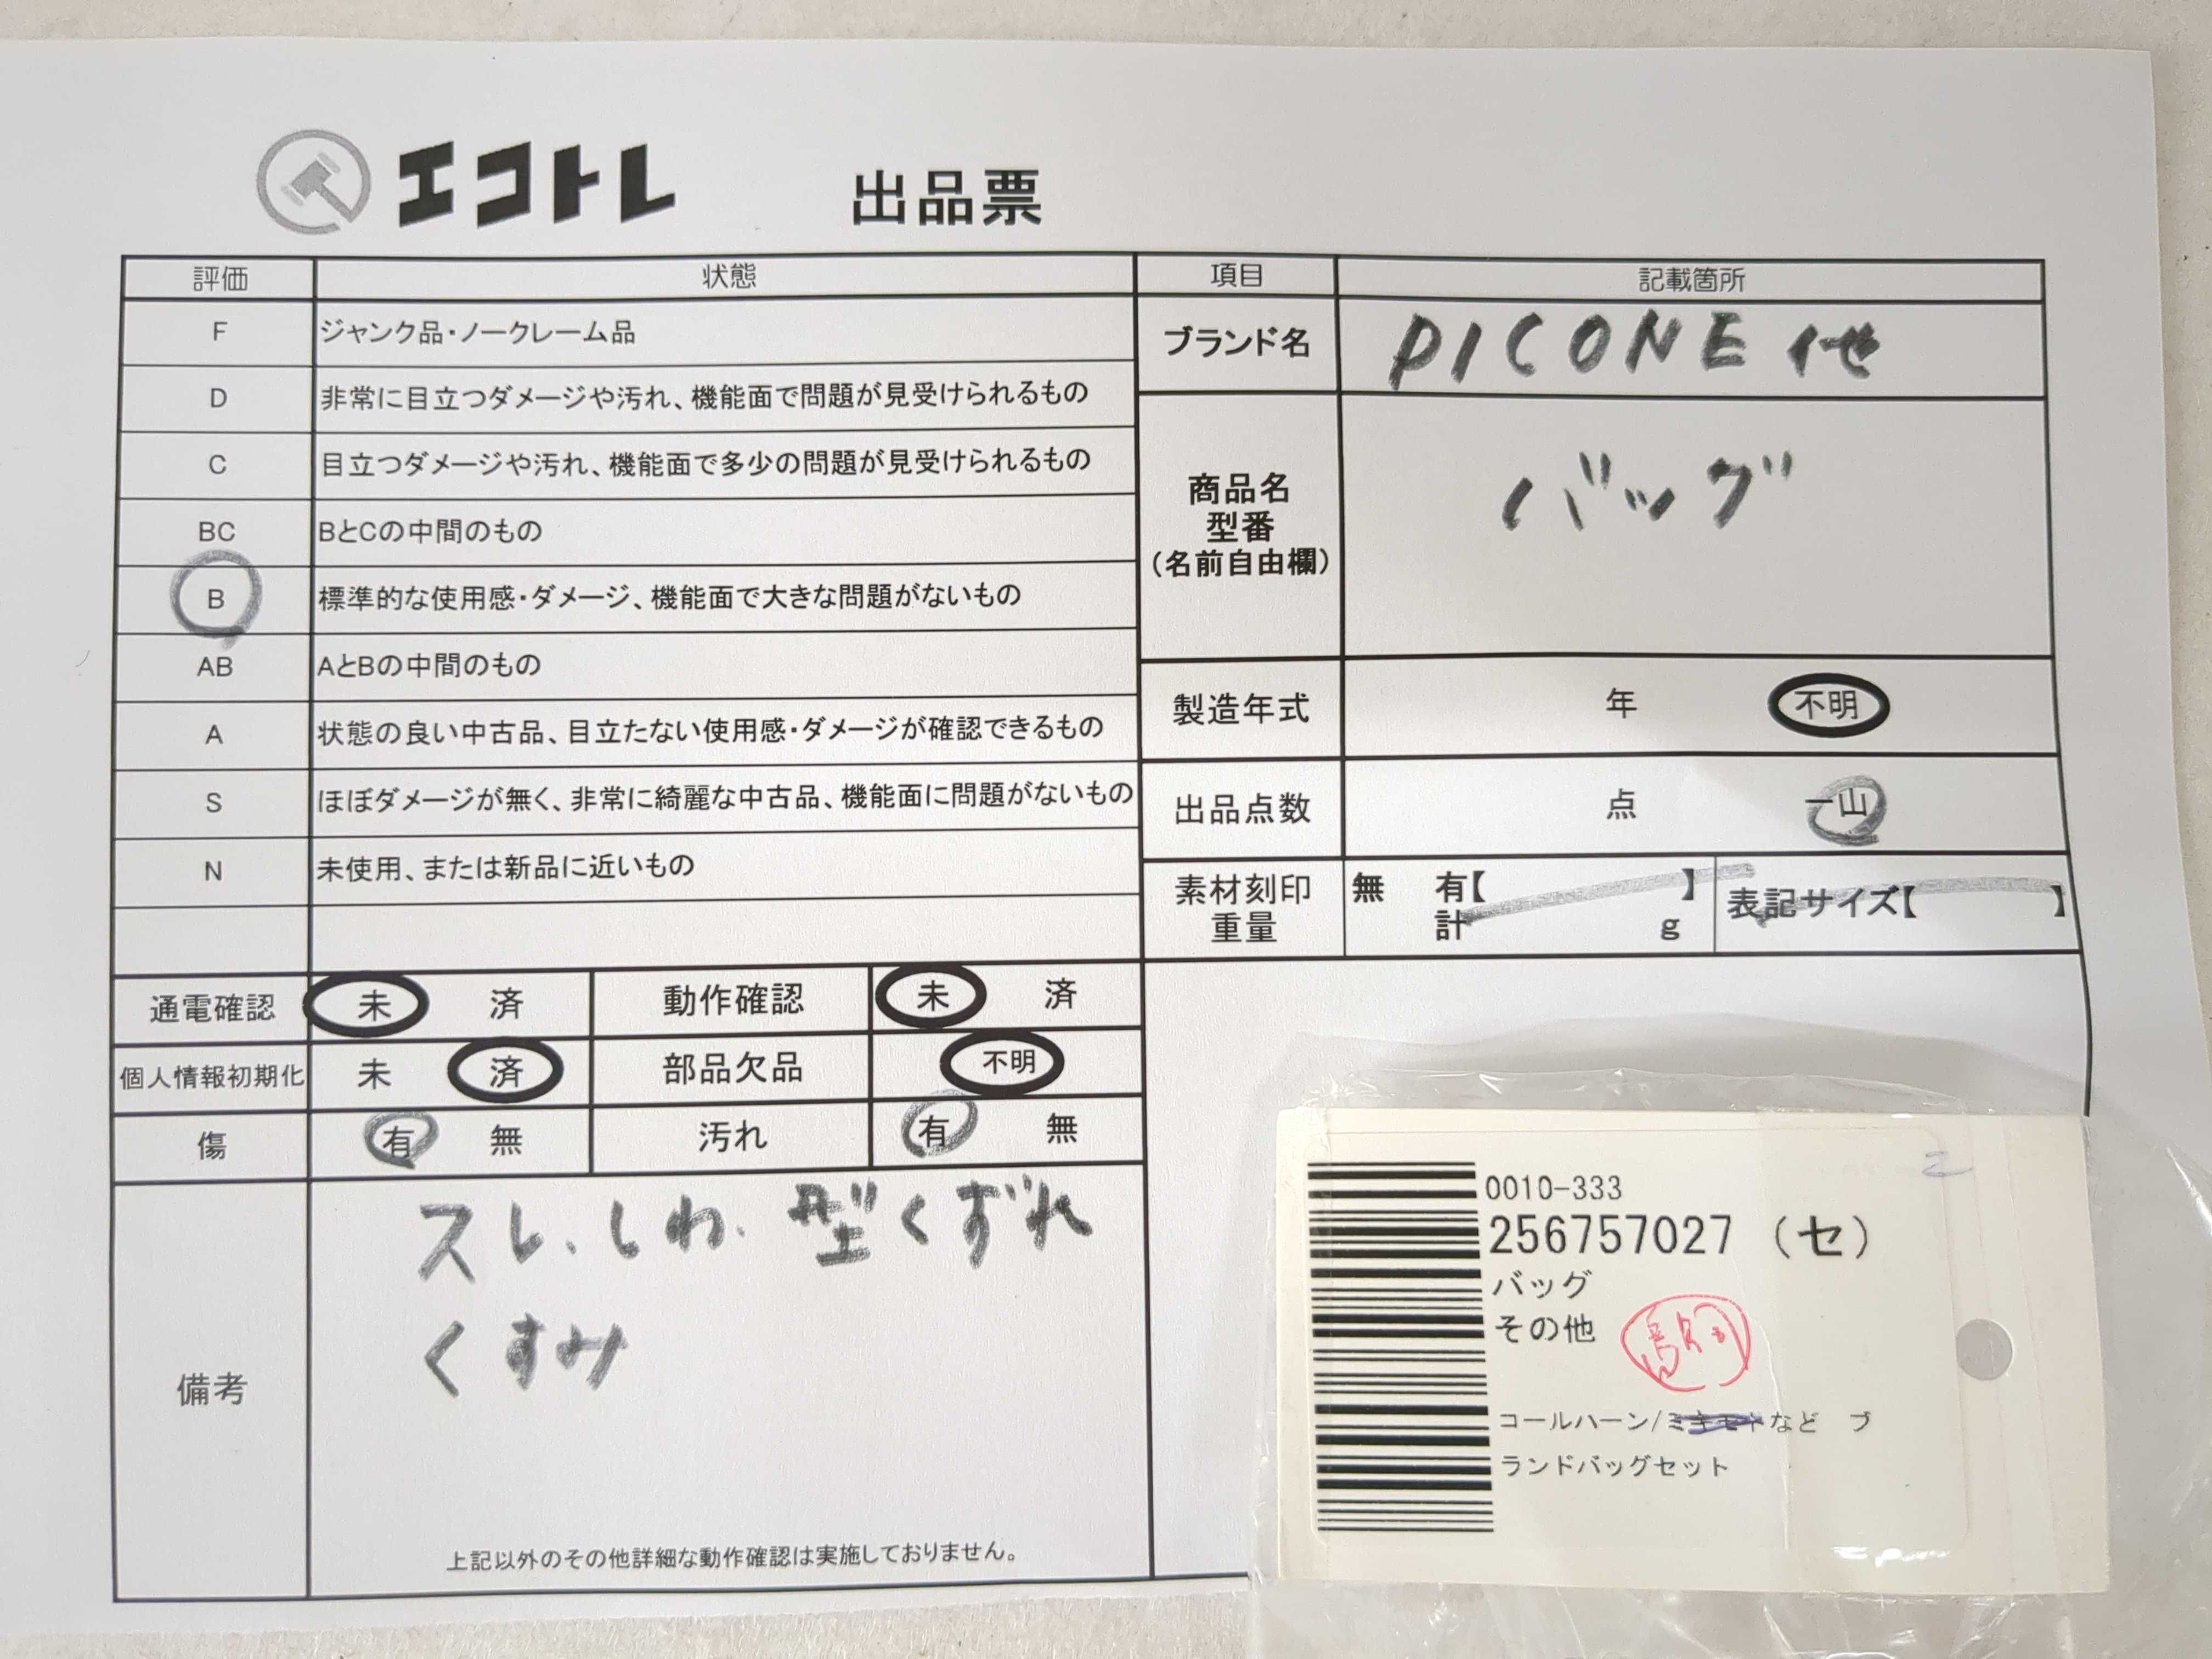 エコトレ 出品票
評価 状態 項目 記載箇所
F ジャンク品・ノークレーム品
D 非常に目立つダメージや汚れ、機能面で問題が見受けられるもの
C 目立つダメージや汚れ、機能面で多少の問題が見受けられるもの
BC BとCの中間のもの
B 標準的な使用感・ダメージ、機能面で大きな問題がないもの
AB AとBの中間のもの
A 状態の良い中古品、目立たない使用感・ダメージが確認できるもの
S ほぼダメージが無く、非常に綺麗な中古品、機能面に問題がないもの
N 未使用、または新品に近いもの
ブランド名 PICONE 他
商品名
型番
(名前自由欄)
バッグ
製造年式 年 不明
出品点数 点 一山
素材刻印 無 有【 】 表記サイズ【 】
重量 計 g
通電確認 未 済 動作確認 未 済
個人情報初期化 未 済 部品欠品 不明
傷 有 無 汚れ 有 無
備考
スレ、しわ、型くずれ
くすみ
上記以外のその他詳細な動作確認は実施しておりません。
0010-333
256757027 (セ)
バッグ
その他
コールハーン/ミキモトなど ブ
ランドバッグセット